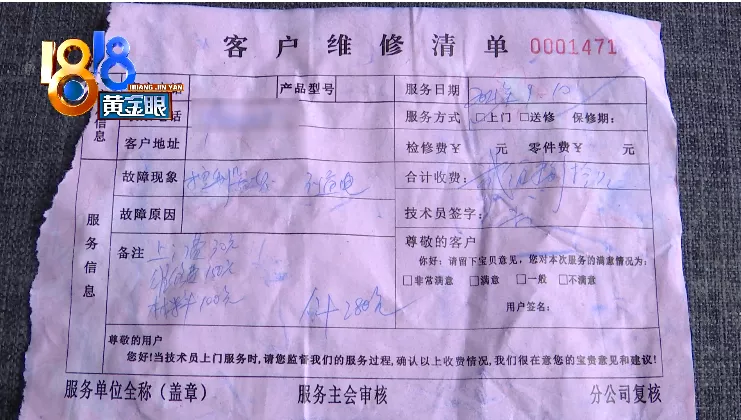 1818
HUANG JIN YAN
黄金眼
客户维修清单 0001471
产品型号
服务日期 2021年9-10
信息
服务方式 □上门 □送修 保修期：
客户地址
检修费¥ 元 零件费¥ 元
故障现象
合计收费：
故障原因
技术员签字：
服务信息
备注 上门费30元
维修费150元
材料100元
合计280元
尊敬的客户
你好：请留下宝贝意见，您对本次服务的满意情况为：
□非常满意 □满意 □一般 □不满意
用户签名：
尊敬的用户
您好！当技术员上门服务时，请您监督我们的服务过程，确认以上收费情况，我们很在意您的宝贵意见和建议！
服务单位全称（盖章） 服务主会审核 分公司复核